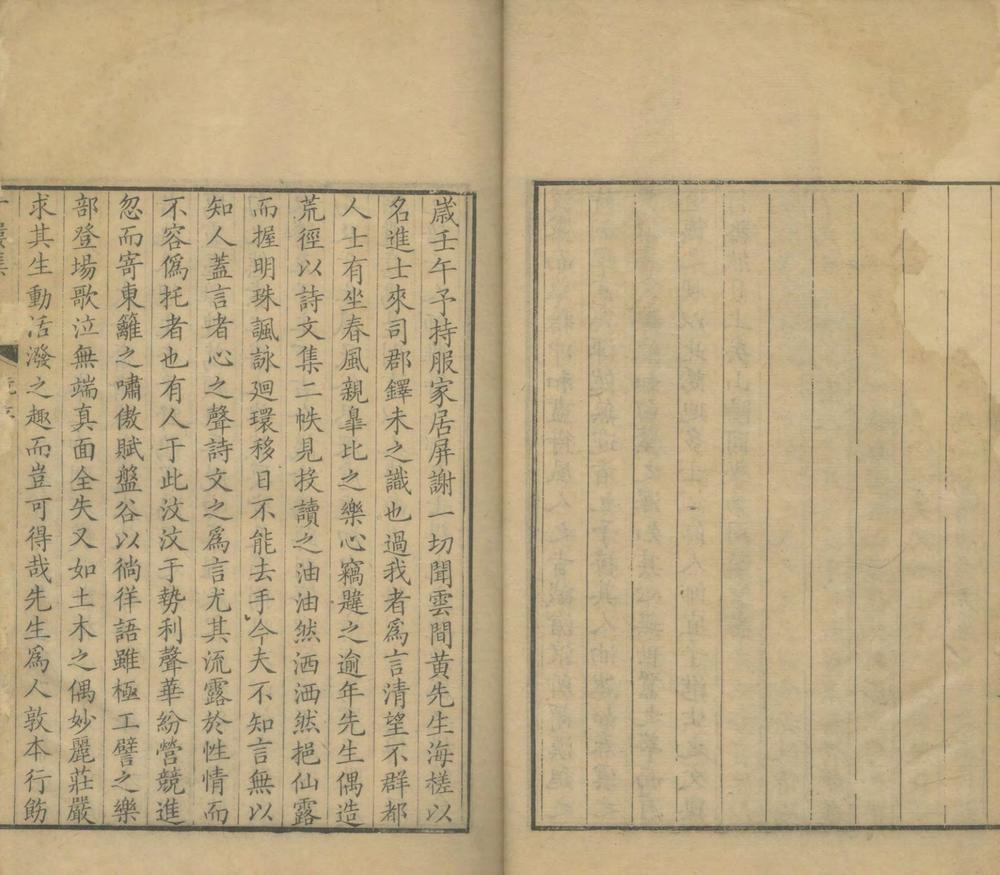 歲壬午予持服家居屏謝一切聞雲間黃先生海槎以
名進士來司郡鐸未之識也過我者爲言清望不群都
人士有坐春風親臯比之樂心竊韙之逾年先生偶造
荒徑以詩文集二帙見授讀之油油然洒洒然挹仙露
而握明珠諷詠廻環移日不能去手今夫不知言無以
知人蓋言者心之聲詩文之爲言尤其流露於性情而
不容僞托者也有人于此汶汶于勢利聲華紛營競進
忽而寄東籬之嘯傲賦盤谷以徜徉語雖極工譬之樂
部登場歌泣無端真面全失又如土木之偶妙麗莊嚴
求其生動活潑之趣而豈可得哉先生爲人敦本行飭